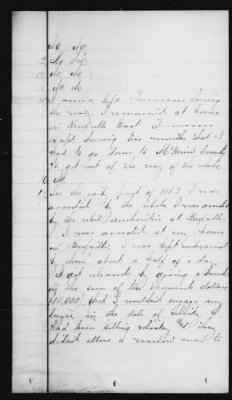 No No
2 No No
No No
No No
I never left Tennessee during
the war, I remained at home
in Knoxville East Tennessee
except during two months that I
had to go down to McMinn County
to get out of the way of the rebels
No
In the early part of 1862 I was
arrested by the rebels I was arrested
by the rebel authorities at Knoxville
I was arrested at my home
in Knoxville I was kept under arrest
by them about a half of a day
I got released by giving a bond
in the sum of ten thousand dollars
$10,000, that I wouldn't engage any
longer in the sale of
Had been selling whiskey and they
didn't allow a man to